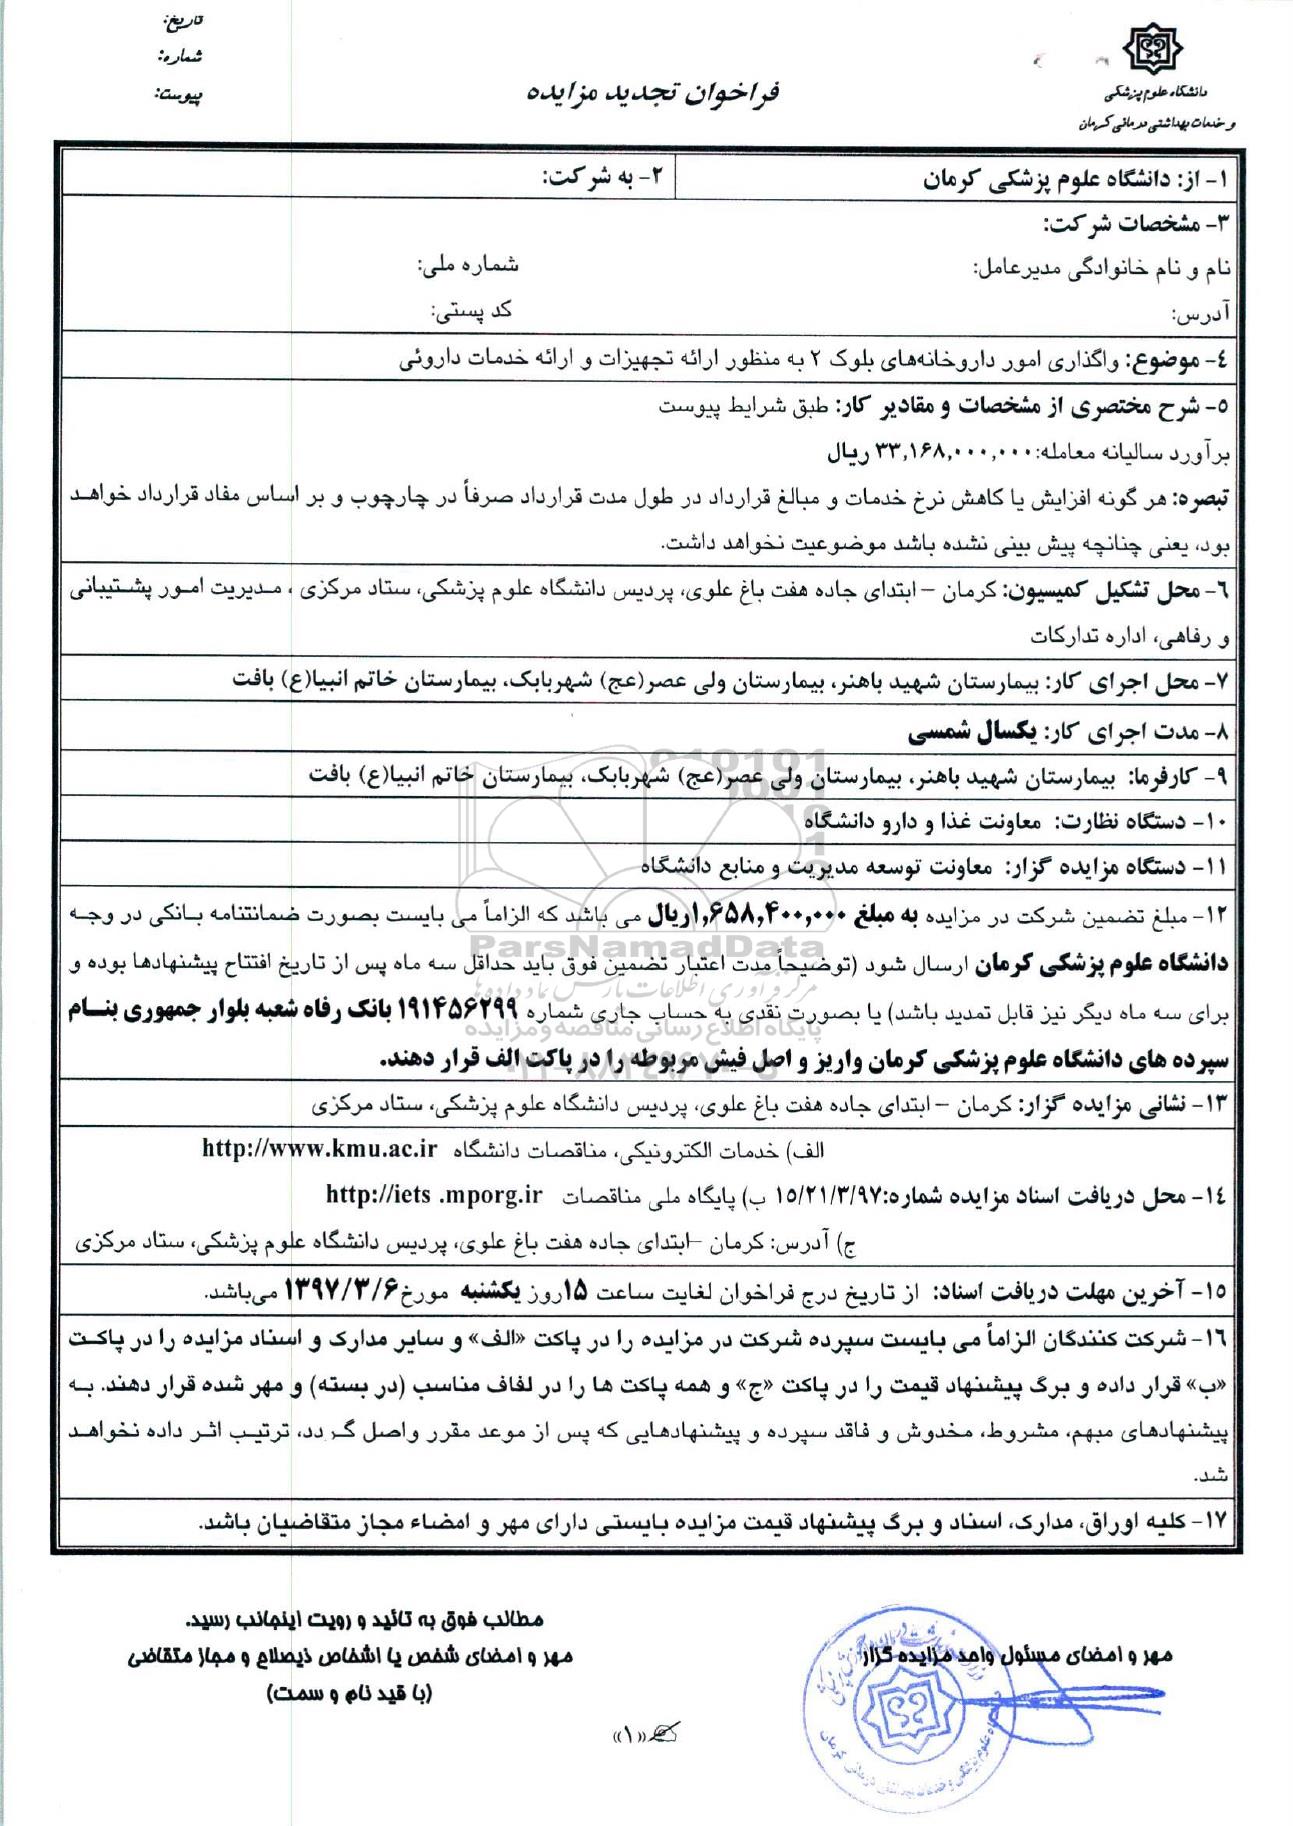 تاریخ:
شماره:
پیوست:
دانشگاه علوم پزشکی
و خدمات بهداشتی درمانی کرمان
فراخوان تجدید مزایده
۱- از: دانشگاه علوم پزشکی کرمان
۲- به شرکت:
۳- مشخصات شرکت:
نام و نام خانوادگی مدیرعامل: شماره ملی:
آدرس: کد پستی:
۴- موضوع: واگذاری امور داروخانه‌های بلوک ۲ به منظور ارائه تجهیزات و ارائه خدمات داروئی
۵- شرح مختصری از مشخصات و مقادیر کار: طبق شرایط پیوست
برآورد سالیانه معامله: ۳۳,۱۶۸,۰۰۰,۰۰۰ ریال
تبصره: هر گونه افزایش یا کاهش نرخ خدمات و مبالغ قرارداد در طول مدت قرارداد صرفاً در چارچوب و بر اساس مفاد قرارداد خواهد
بود، یعنی چنانچه پیش بینی نشده باشد موضوعیت نخواهد داشت.
۶- محل تشکیل کمیسیون: کرمان – ابتدای جاده هفت باغ علوی، پردیس دانشگاه علوم پزشکی، ستاد مرکزی ، مدیریت امور پشتیبانی
و رفاهی، اداره تدارکات
۷- محل اجرای کار: بیمارستان شهید باهنر، بیمارستان ولی عصر(عج) شهربابک، بیمارستان خاتم انبیا(ع) بافت
۸- مدت اجرای کار: یکسال شمسی
۹- کارفرما: بیمارستان شهید باهنر، بیمارستان ولی عصر(عج) شهربابک، بیمارستان خاتم انبیا(ع) بافت
۱۰- دستگاه نظارت: معاونت غذا و دارو دانشگاه
۱۱- دستگاه مزایده گزار: معاونت توسعه مدیریت و منابع دانشگاه
۱۲- مبلغ تضمین شرکت در مزایده به مبلغ ۱,۶۵۸,۴۰۰,۰۰۰ریال می باشد که الزاماً می بایست بصورت ضمانتنامه بانکی در وجه
دانشگاه علوم پزشکی کرمان ارسال شود (توضیحاً مدت اعتبار تضمین فوق باید حداقل سه ماه پس از تاریخ افتتاح پیشنهادها بوده و
برای سه ماه دیگر نیز قابل تمدید باشد) یا بصورت نقدی به حساب جاری شماره ۱۹۱۴۵۶۲۹۹ بانک رفاه شعبه بلوار جمهوری بنام
سپرده های دانشگاه علوم پزشکی کرمان واریز و اصل فیش مربوطه را در پاکت الف قرار دهند.
۱۳- نشانی مزایده گزار: کرمان – ابتدای جاده هفت باغ علوی، پردیس دانشگاه علوم پزشکی، ستاد مرکزی
الف) خدمات الکترونیکی، مناقصات دانشگاه http://www.kmu.ac.ir
۱۴- محل دریافت اسناد مزایده شماره:۱۵/۲۱/۳/۹۷ ب) پایگاه ملی مناقصات http://iets .mporg.ir
ج) آدرس: کرمان –ابتدای جاده هفت باغ علوی، پردیس دانشگاه علوم پزشکی، ستاد مرکزی
۱۵- آخرین مهلت دریافت اسناد: از تاریخ درج فراخوان لغایت ساعت ۱۵روز یکشنبه مورخ۱۳۹۷/۳/۶ می‌باشد.
۱۶- شرکت کنندگان الزاماً می بایست سپرده شرکت در مزایده را در پاکت «الف» و سایر مدارک و اسناد مزایده را در پاکت
«ب» قرار داده و برگ پیشنهاد قیمت را در پاکت «ج» و همه پاکت ها را در لفاف مناسب (در بسته) و مهر شده قرار دهند. به
پیشنهادهای مبهم، مشروط، مخدوش و فاقد سپرده و پیشنهادهایی که پس از موعد مقرر واصل گردد، ترتیب اثر داده نخواهد
شد.
۱۷- کلیه اوراق، مدارک، اسناد و برگ پیشنهاد قیمت مزایده بایستی دارای مهر و امضاء مجاز متقاضیان باشد.
ParsNamadData
مرکز فرآوری اطلاعات پارس نماد داده‌ها
پایگاه اطلاع رسانی مناقصه و مزایده
مهر و امضای مسئول واحد مزایده گزار
مطالب فوق به تائید و رویت اینجانب رسید.
مهر و امضای شخص یا اشخاص ذیصلاح و مجاز متقاضی
(با قید نام و سمت)
«۱»